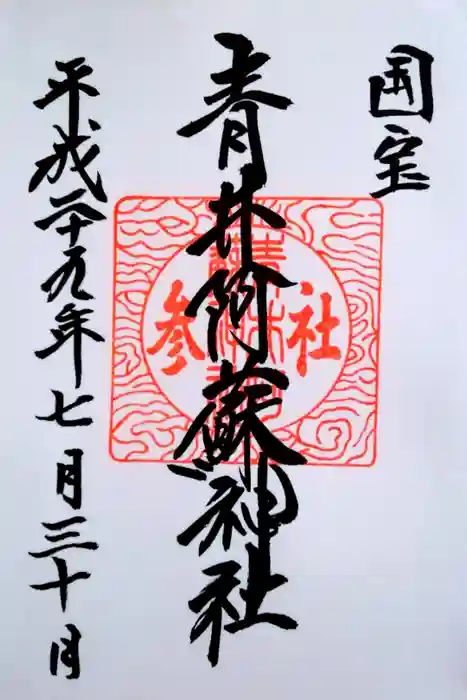 国宝
青井阿蘇神社
社参
平成二十九年七月三十日